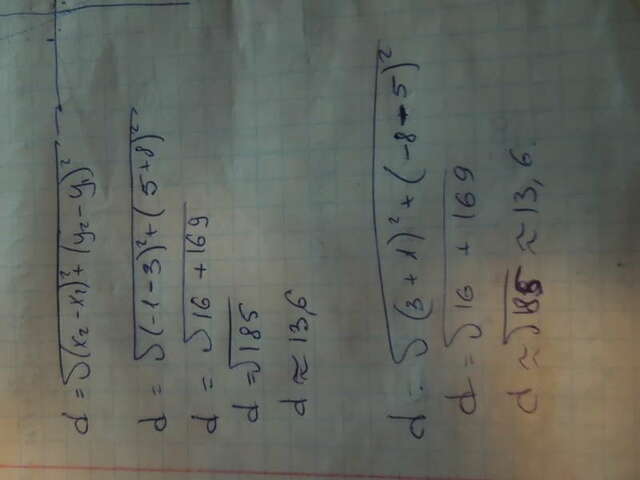 d = √(x₂ - x₁)² + (y₂ - y₁)²
d = √(-1-3)² + (5+8)²
d = √16 + 169
d = √185
d ≈ 13,6
d = √(3+1)² + (-8-5)²
d = √16 + 169
d ≈ √185 ≈ 13,6